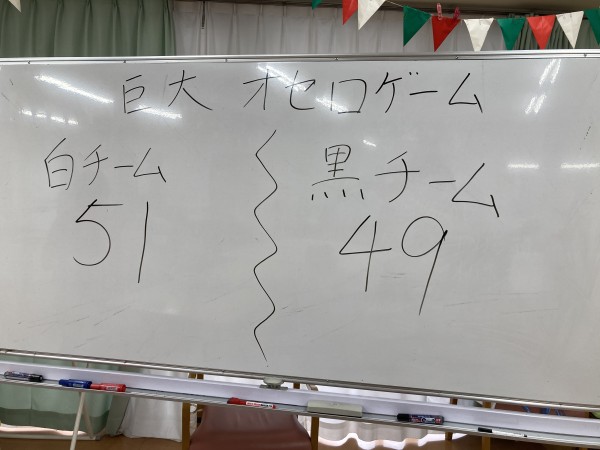 巨大 オセロゲーム
白チーム
51
黒チーム
49